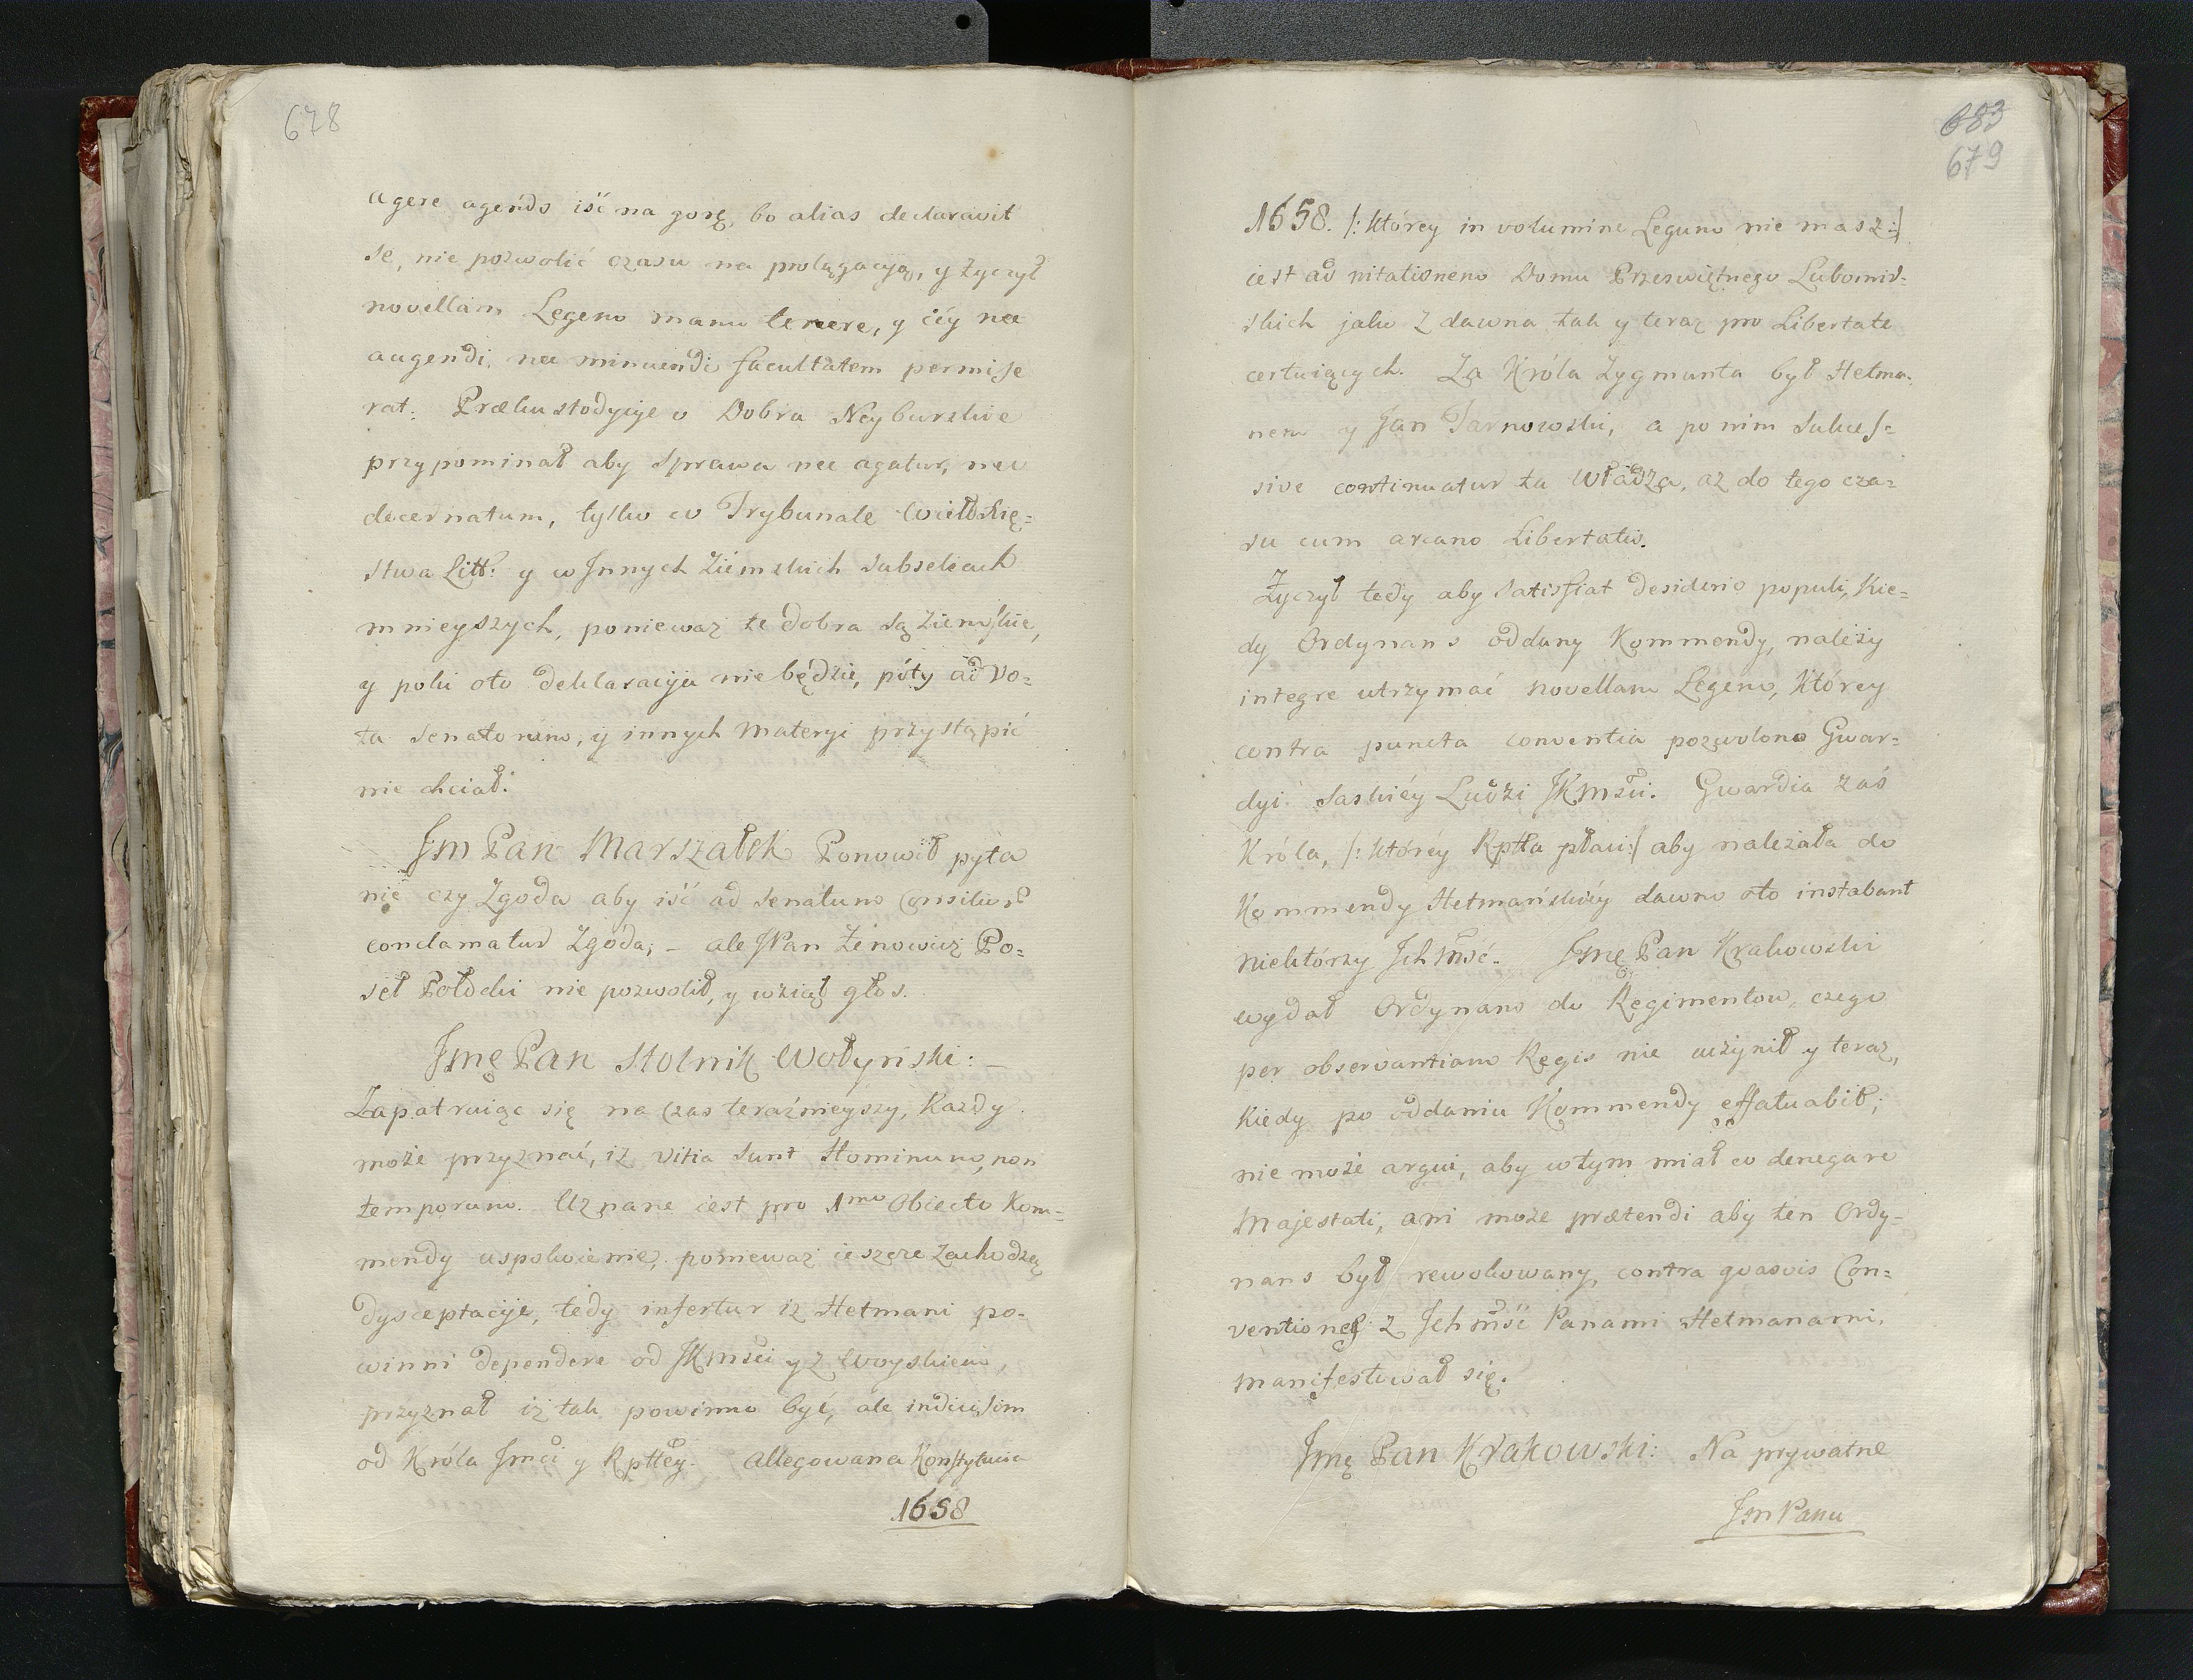 678
agere agendo iść na gorę, bo alias declaravit
se, nie pozwolić czasu na prolągacyą, y życzył
novellam Legem manu tenere, y iéy nec
augendi, nec minuendi facultatem permise
rat. Prækustodyiye o Dobra Neyburskie
przypominał aby sprawa nec agatur, nec
decernatum, tylko w Trybunale Wiełdkię=
stwa Litt: y w Innych Ziemskich subseliach
mnieyszych, ponieważ te dobra są Ziemskie,
y poki oto deklaracyia nie będzie, póty ad Vo=
ta Senatorum, y innych Materyi przystąpić
nie chciał.
Jm Pan Marszałek Ponowił pyta
nie czy Zgoda aby iść ad Senatum Consilium
conclamatur Zgoda; – ale JPan Zénowicz Po=
seł Połocki nie pozwolił, y wziął głos.
Jmę Pan Stolnik Wołyński: –
Zapatruiąc się na Czas teraźnieyszy, Każdy
może przyznać, iż vitia sunt Hominum, non
temporum. Uznane iest pro 1mo Obiecto Kom=
mendy uspokoienie, ponieważ ieszcze zachodzą
dysceptacyie, tedy infertur iż Hetmani po=
winni dependere od JKmści y z Woyskiem,
przyznał iż tak powinno być, ale indivisim
od Króla Jmći y Rpttéy. Allegowana Konstytucia
1658
683
679
1658. /: któréy in volumine Legum nie masz :/
iest ad nitationem Domu Przeświętnego Lubomir=
skich jako z dawna tak y teraz pro Libertate
certuiących. Za Króla Zygmunta był Hetma=
nem y Jan Tarnowski, a po nim Sukces=
sive continuatur ta Władza, aż do tego cza=
su cum arcano Libertatis.
Życzył tedy aby satisfiat desiderio populi, Kie=
dy Ordynans oddany Kommendy, należy
integre utrzymać novellam Legem, któréy
contra puncta conventia pozwolono Gwar=
dyi Saskiéy Ludzi JKmści. Gwardia zaś
Króla, /: któréy Rptta płaci :/ aby należała do
Kommendy Hetmańskiéy dawno oto instabant
niektórzy Jchmść. Jmę Pan Krakowski
wydał Ordynans do Regimentow, czego
per observantiam Regis nie uczynił y teraz,
Kiedy po oddaniu Kommendy effatuabit;
nie może argui, aby wtym miał co denegare
Majestati, ani może prætendi aby ten Ordy=
nans był rewokowany, contra quasvis Con=
ventiones z Jchmść Panami Hetmanami,
manifestował się.
Jmę Pan Krakowski: Na prywatne
Jm Panu